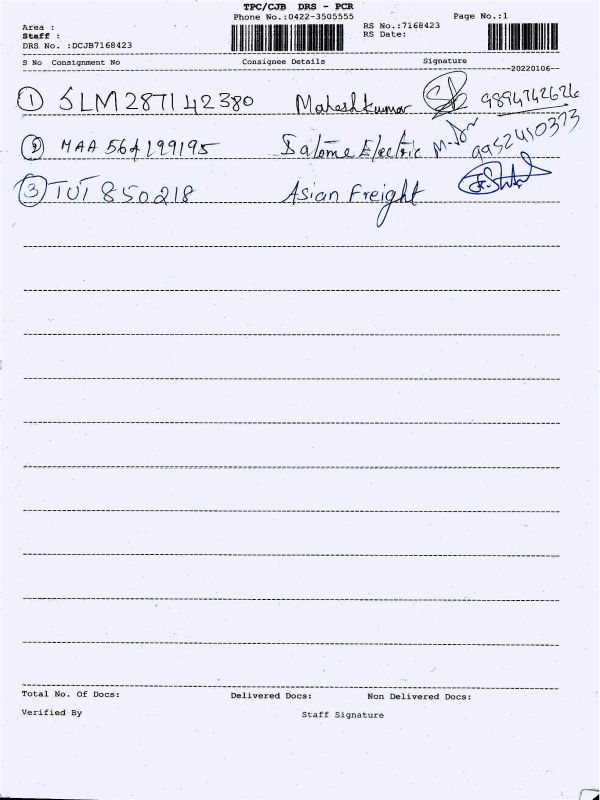 TPC/CJB DRS - PCR
Phone No.:0422-3505555
Page No.:1
Area :
RS No.:7168423
Staff :
RS Date:
DRS No. :DCJB7168423
S No Consignment No Consignee Details Signature
20220106
1 SLM287142380 Maheshkumar 9894742626
2 MAA 564199195 Salome Electric 9952410373
3 TUT 850218 Asian Freight
Total No. Of Docs: Delivered Docs: Non Delivered Docs:
Verified By Staff Signature